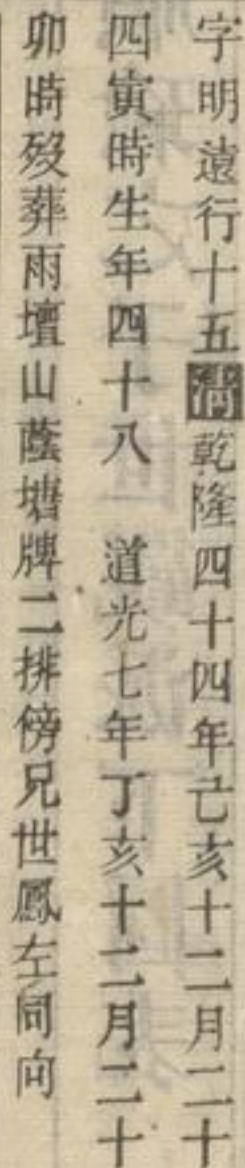 字明遠行十五清乾隆四十四年己亥十二月二十
四寅時生年四十八　道光七年丁亥十二月二十
卯時殁葬雨壇山蔭塘牌二排傍兄世鳳左同向